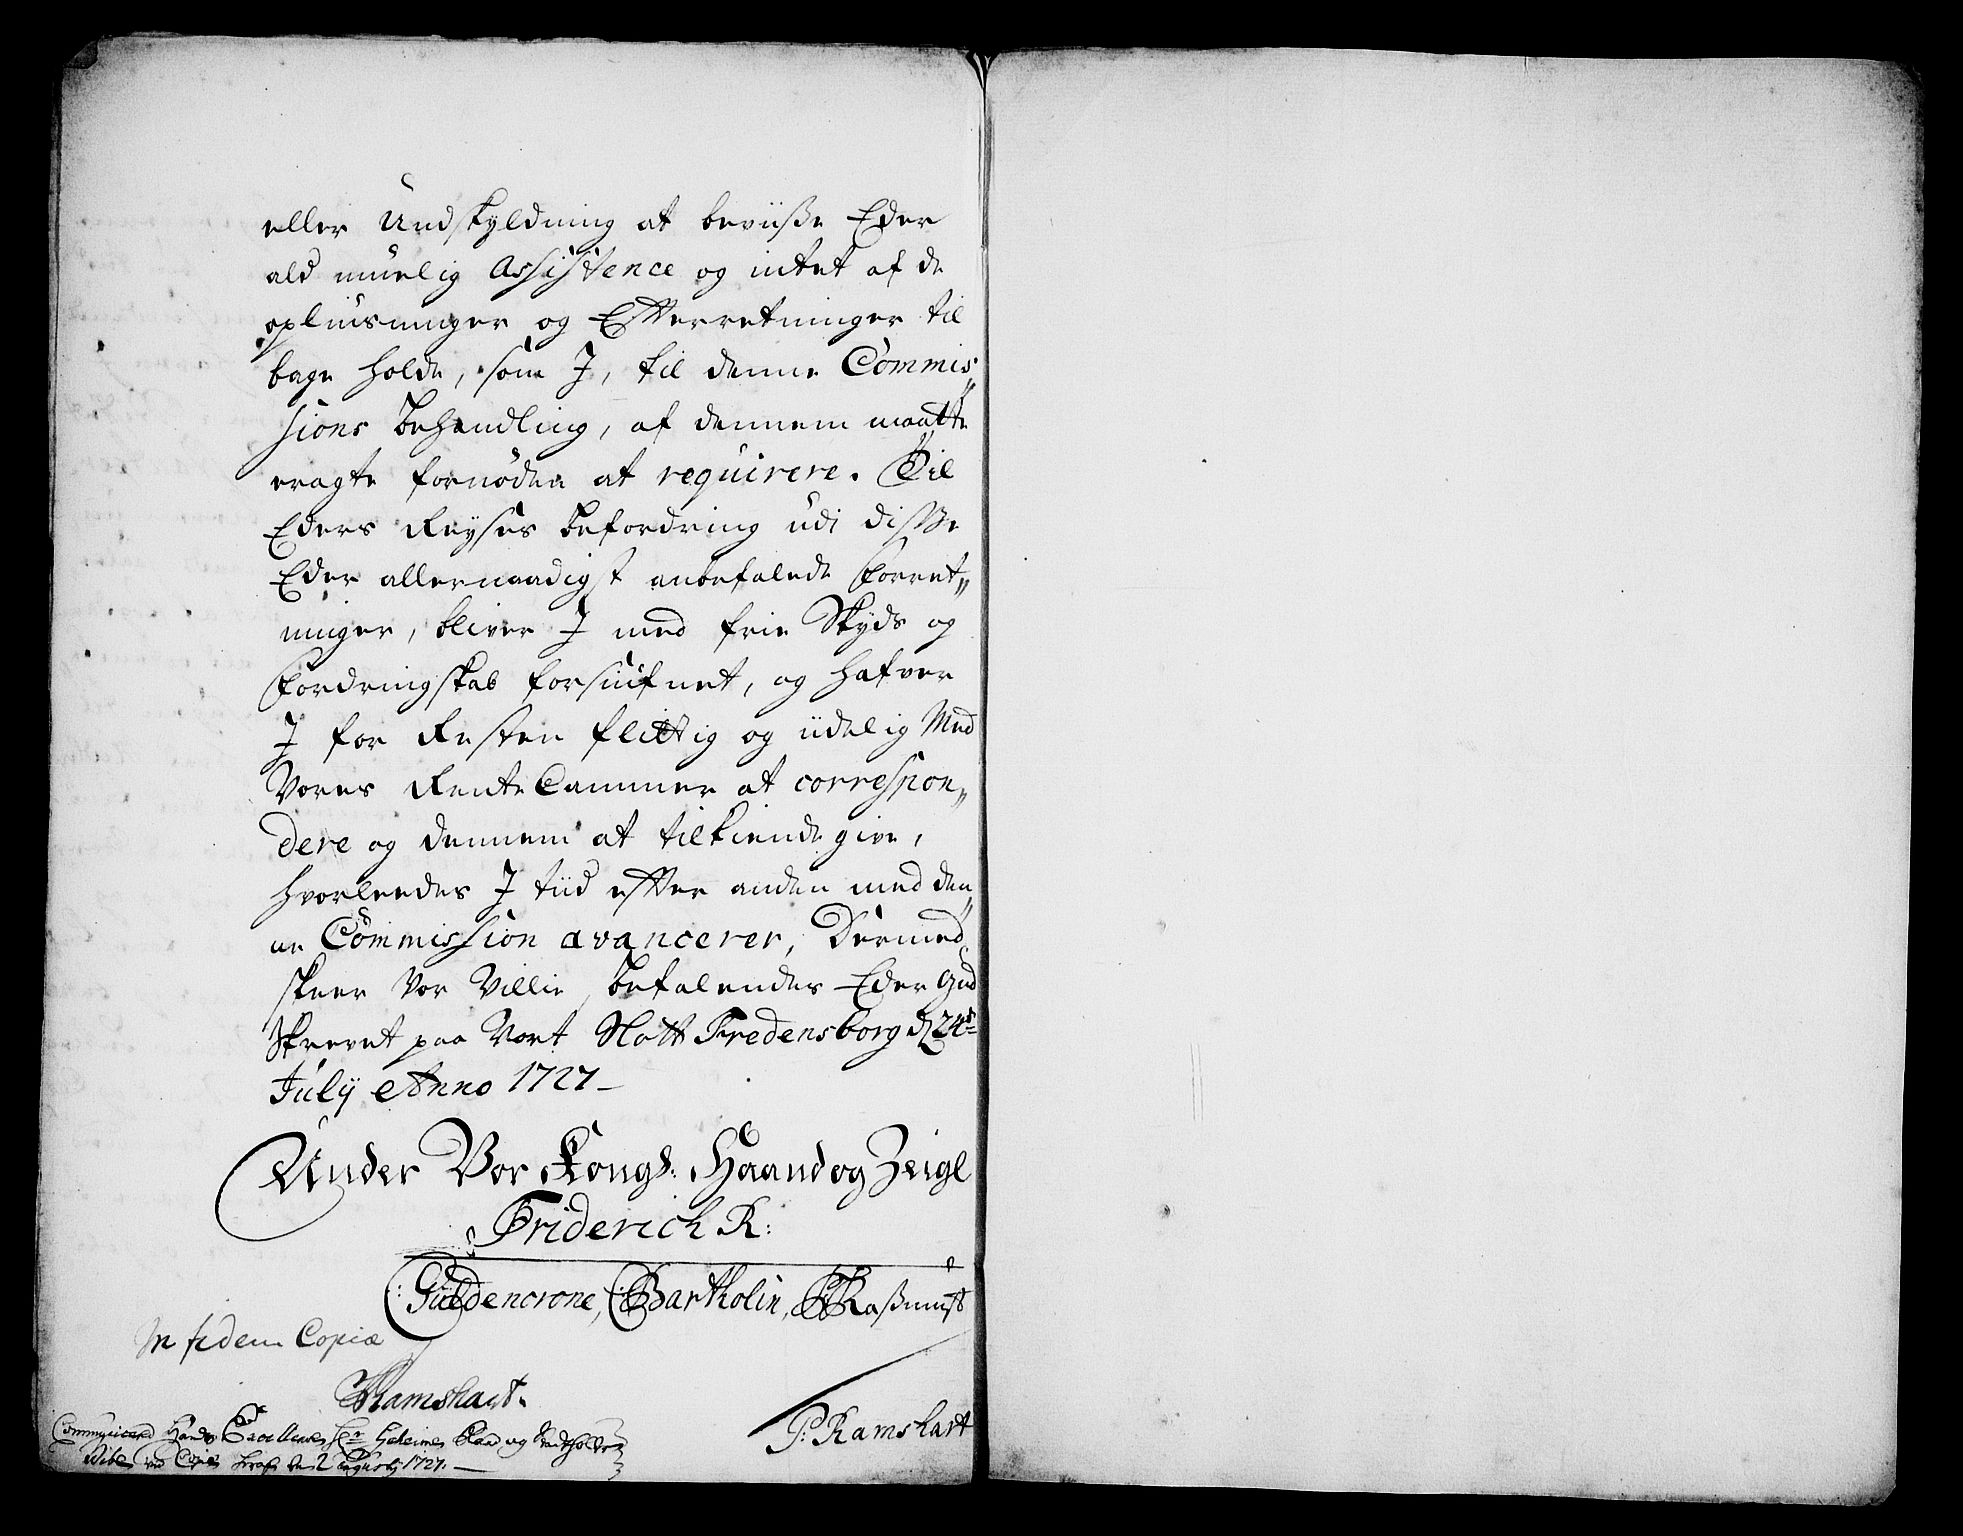 eller Undskyldning at beviiße Eder
ald muelig Assistence og intet af de
opliusninger og Efterretninger til
bage holde, som I, til denne Commis„
sions behandling, af dennem maatte
eragte fornøden at requirere. Til
Eders Reyses befordring udi diße
Eder allernaadigst anbefalede forret„
ninger, bliver I med frie Skyds og
fordringskab forsiufnet, og hafver
I for Resten flittig og iidelig Med
Vores RenteCammer at correspon„
dere og dennem at tilkiende give,
hvorleedes I tiid efter anden med den„
ne Commission avancerer, Dermed
skeer Vor Villie, befalendes Eder Gud
Skrevet paa Vort Slott Fredensborg d 24de
July Anno 1727 –
Under Vor Kongl: Haand og Zeigl
Friderich R:
Güldencrone, Bartholin, Raßmuß
In fidem Copiæ
Ramshart.
P: Ramshart
Communicerd Hands Excellences Hr Geheime Raad og Stadtholder
Vibe ved Copie heraf den 2 Augusty 1727. –